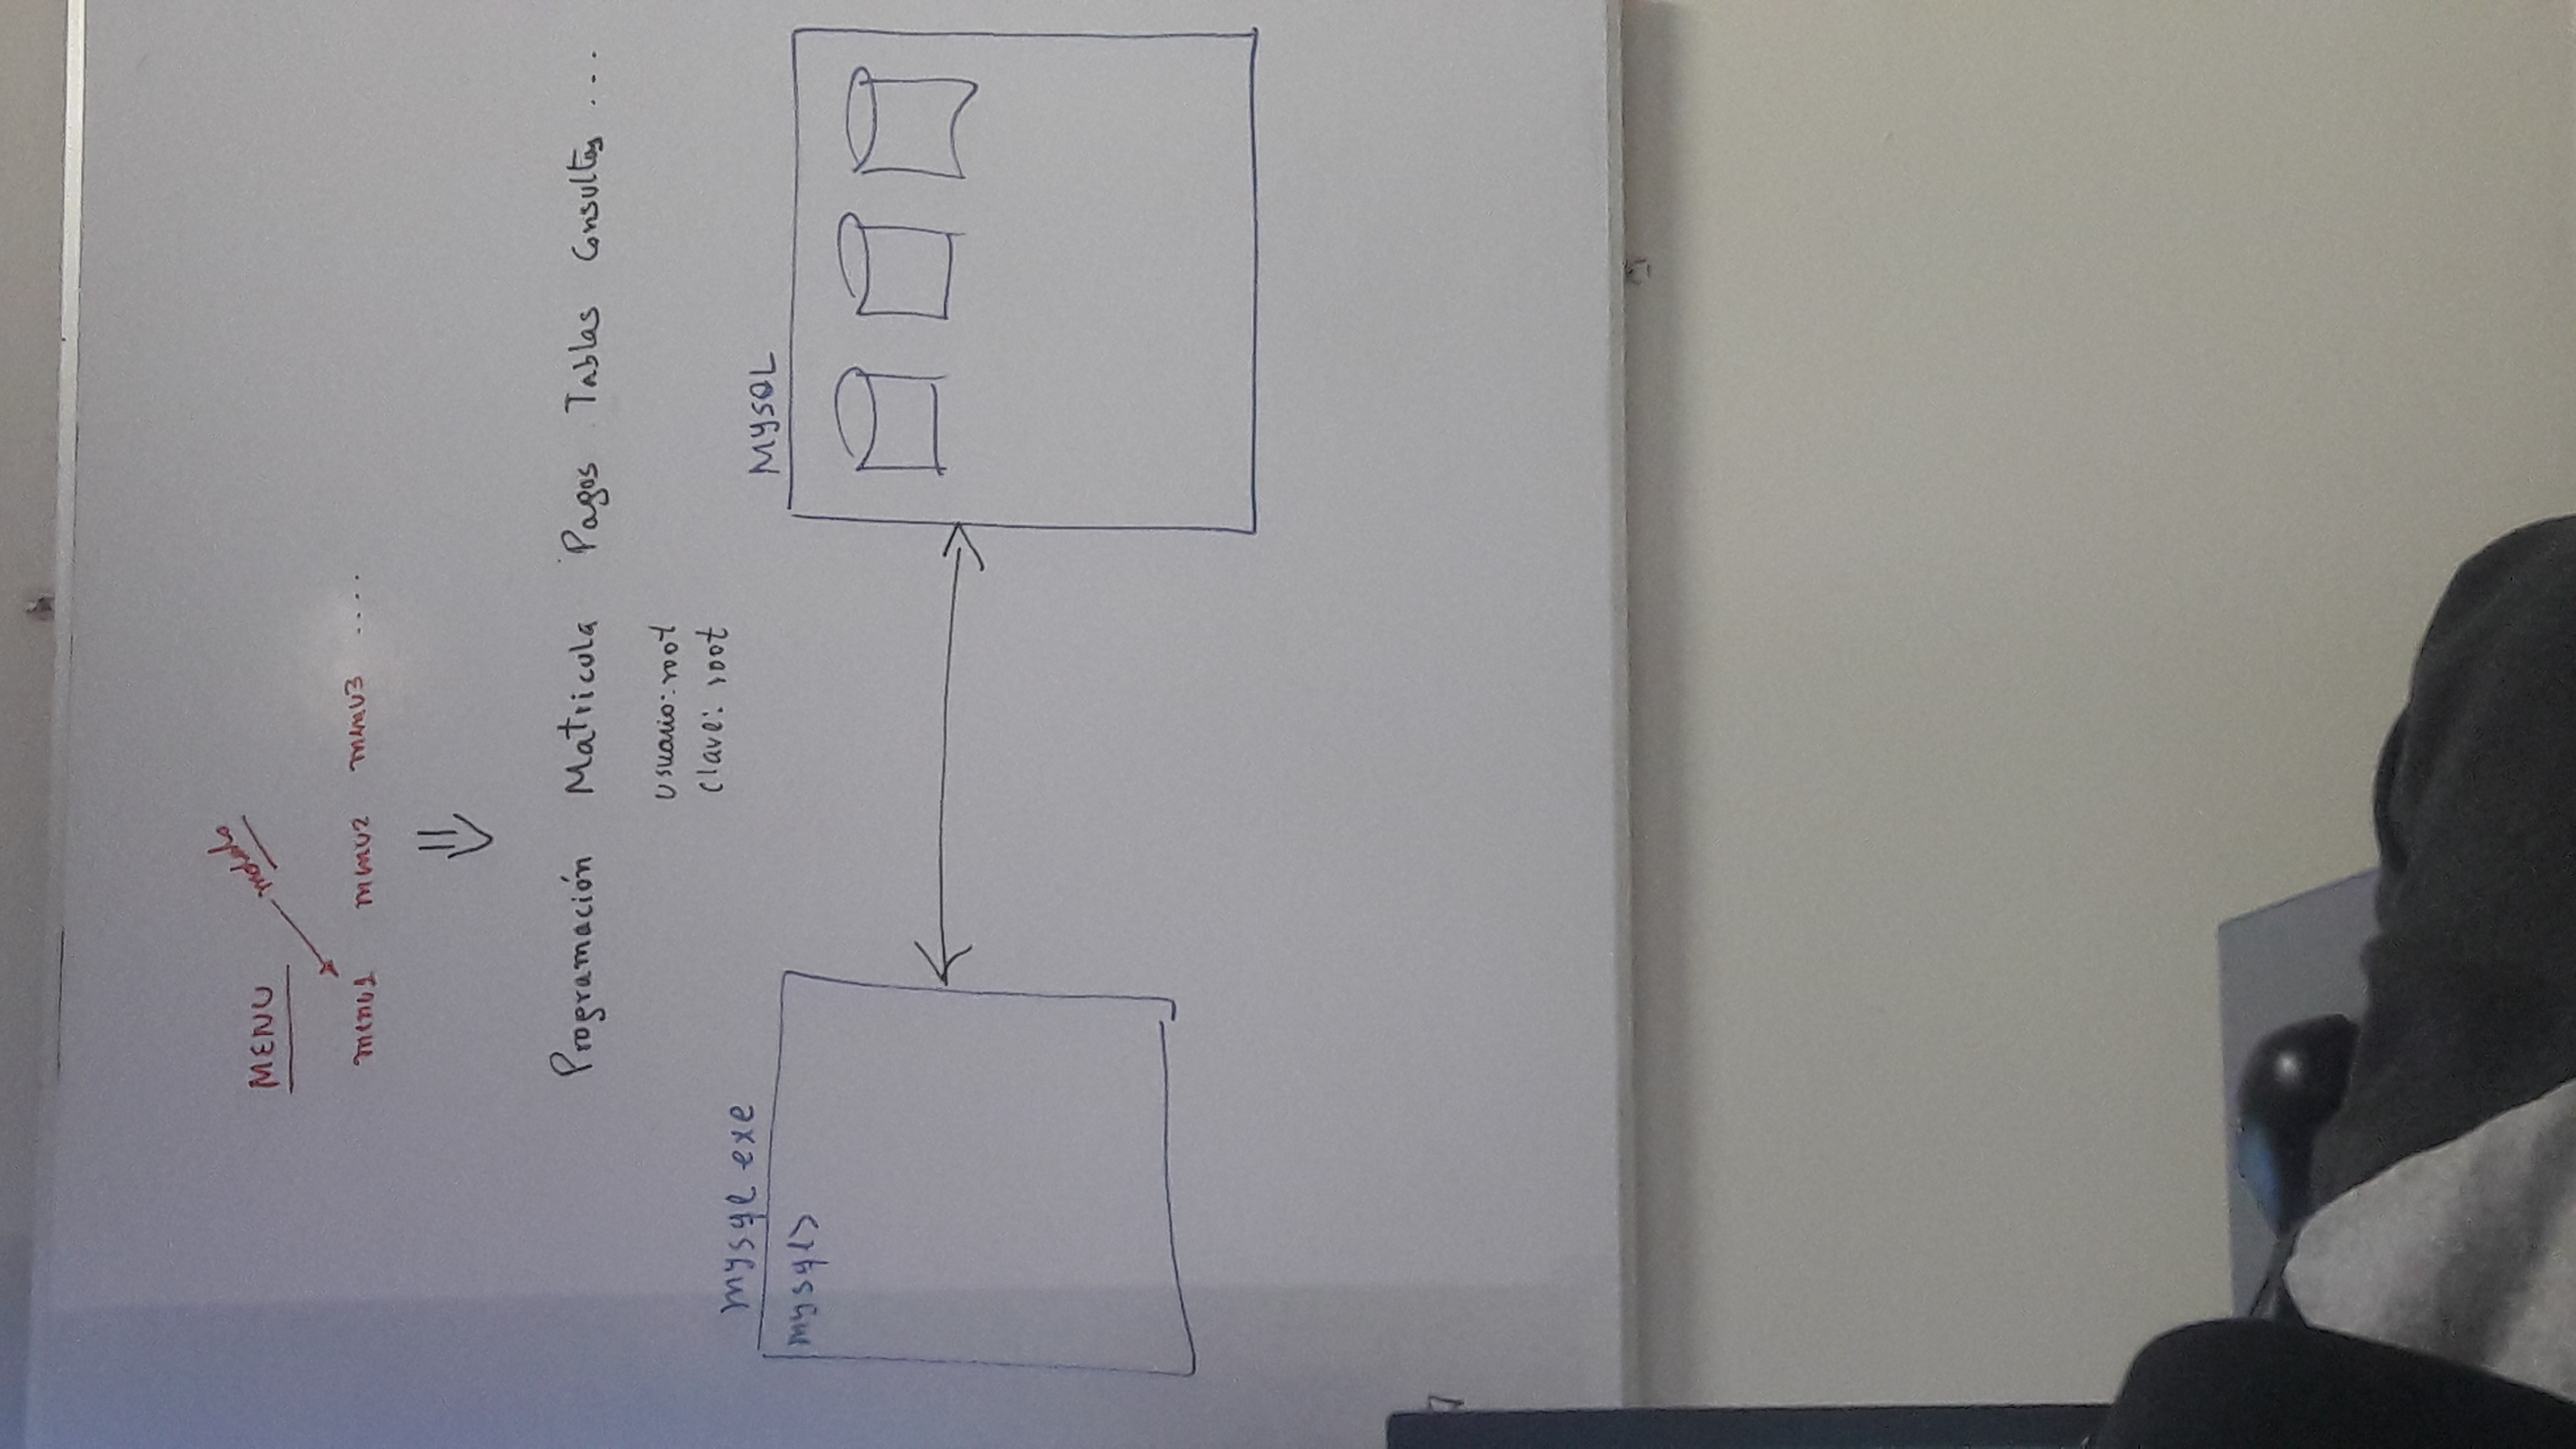 MENU
menu1 menu2 menu3 ....
Programación Matricula Pagos Tablas Consultas ...
usuario: root
clave: root
mysql exe
mysql>
MYSQL